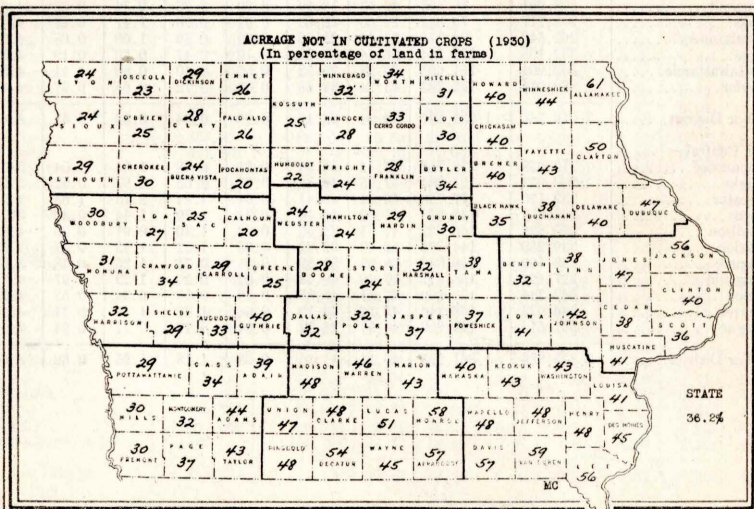 ACREAGE NOT IN CULTIVATED CROPS (1930)
(In percentage of land in farms)
LYON 24
OSCEOLA 23
DICKINSON 29
EMMET 26
WINNEBAGO 32
WORTH 34
MITCHELL 31
HOWARD 40
WINNESHIEK 44
ALLAMAKEE 61
SIOUX 24
O'BRIEN 25
CLAY 28
PALO ALTO 26
KOSSUTH 25
HANCOCK 28
CERRO GORDO 33
FLOYD 30
CHICKASAW 40
FAYETTE 43
CLAYTON 50
PLYMOUTH 29
CHEROKEE 30
BUENA VISTA 24
POCAHONTAS 20
HUMBOLDT 22
WRIGHT 24
FRANKLIN 28
BUTLER 34
BREMER 40
BLACK HAWK 35
BUCHANAN 38
DELAWARE 40
DUBUQUE 47
WOODBURY 30
IDA 27
SAC 25
CALHOUN 20
WEBSTER 24
HAMILTON 24
HARDIN 29
GRUNDY 30
MONONA 31
CRAWFORD 34
CARROLL 29
GREENE 25
BOONE 28
STORY 24
MARSHALL 32
TAMA 38
BENTON 32
LINN 38
JONES 47
JACKSON 56
CLINTON 40
HARRISON 32
SHELBY 29
AUDUBON 33
GUTHRIE 40
DALLAS 32
POLK 32
JASPER 37
POWESHIEK 37
IOWA 41
JOHNSON 42
CEDAR 38
SCOTT 36
MUSCATINE 41
POTTAWATTAMIE 29
CASS 34
ADAIR 39
MADISON 48
WARREN 46
MARION 43
MAHASKA 40
KEOKUK 43
WASHINGTON 43
LOUISA 41
STATE
36.2%
MILLS 30
MONTGOMERY 32
ADAMS 44
UNION 47
CLARKE 48
LUCAS 51
MONROE 58
WAPELLO 48
JEFFERSON 48
HENRY 48
DES MOINES 45
FREMONT 30
PAGE 37
TAYLOR 43
RINGGOLD 48
DECATUR 54
WAYNE 45
APPANOOSE 57
DAVIS 57
VAN BUREN 59
LEE 56
MC